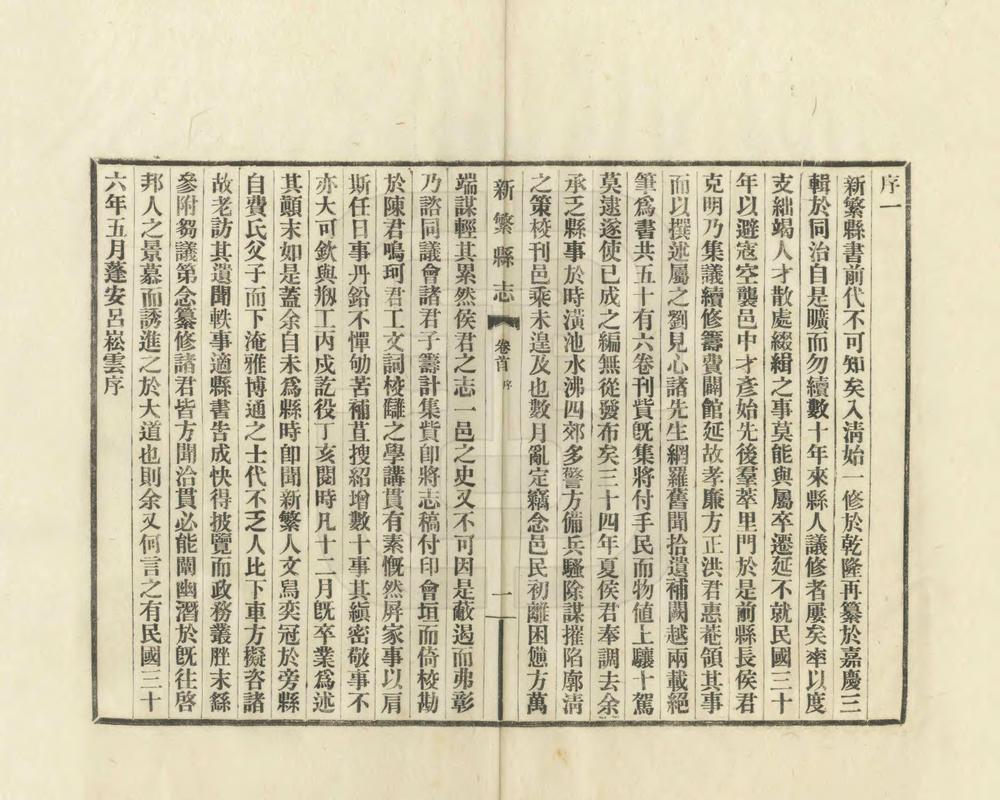 序一
新繁縣書前代不可知矣入淸始一修於乾隆再纂於嘉慶三
輯於同治自是曠而勿續數十年來縣人議修者屢矣率以度
支絀竭人才散處綴緝之事莫能與屬卒遷延不就民國三十
年以避寇空襲邑中才彥始先後羣萃里門於是前縣長侯君
克明乃集議續修籌費闢館延故孝廉方正洪君惠菴領其事
而以撰述屬之劉見心諸先生網羅舊聞拾遺補闕越兩載絕
筆爲書共五十有六卷刊貲旣集將付手民而物値上驤十駕
莫逮遂使已成之編無從發布矣三十四年夏侯君奉調去余
承乏縣事於時潢池水沸四郊多警方備兵騷除謀摧陷廓淸
之策校刊邑乘未遑及也數月亂定竊念邑民初離困憊方萬
新繁縣志 卷首 序 一
端謀輕其累然侯君之志一邑之史又不可因是蔽遏而弗彰
乃諮同議會諸君子籌計集貲卽將志稿付印會垣而倚校勘
於陳君鳴珂君工文詞校讎之學講貫有素慨然屛家事以肩
斯任日事丹鉛不憚劬苦補苴搜紹增數十事其縝密敬事不
亦大可欽與剏工丙戍訖役丁亥閱時凡十二月旣卒業爲述
其顚末如是蓋余自未爲縣時卽聞新繁人文舄奕冠於旁縣
自費氏父子而下淹雅博通之士代不乏人比下車方擬咨諸
故老訪其遺聞軼事適縣書告成快得披覽而政務叢脞末繇
參附芻議第念纂修諸君皆方聞洽貫必能闡幽潛於旣往啓
邦人之景慕而誘進之於大道也則余又何言之有民國三十
六年五月蓬安呂崧雲序